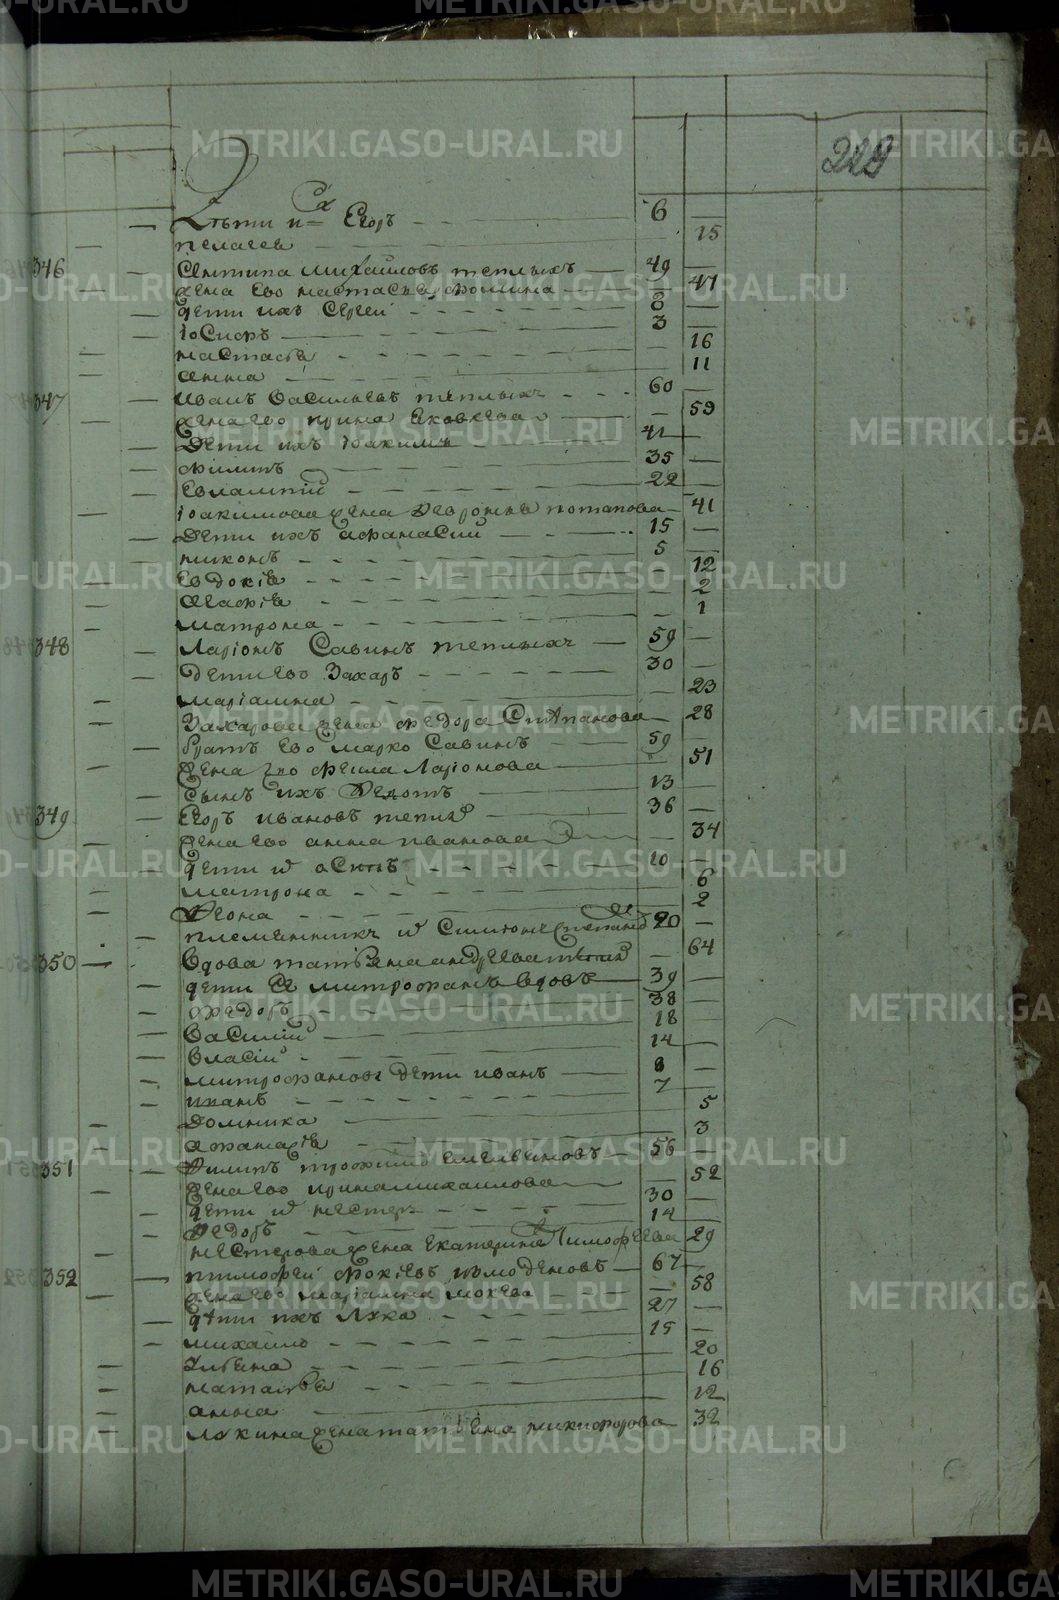 METRIKI.GASO-URAL.RU
228
дѣти их Егоръ — 6
пелагея — 15
346 Сентипа михайловъ теплыхъ — 49
жена ево настасья фомина — 47
дети ихъ Сергей — 8
Iосифъ — 3
настасья — 16
анна — 11
347 иванъ васильевъ теплыхъ — 60
жена ево ирина Яковлева — 59
дети ихъ Iоакимъ — 41
филипъ — 35
Евлампий — 22
Iоакимова жена Февронья потапова — 41
дети ихъ афанасий — 15
никонъ — 5
Евдокiя — 12
агафiя — 2
матрона — 1
348 Ларiонъ Савинъ теплыхъ — 59
дети ево Захаръ — 30
марiамна — 23
Захарова жена федора Степанова — 28
братъ ево марко Савинъ — 59
жена ево фекла Ларiонова — 51
сынъ ихъ Федотъ — 13
349 Егоръ ивановъ тепл — 36
жена ево анна иванова — 34
дети их осипъ — 10
матрона — 6
Феона — 2
племянникъ их Симионъ Степанов — 20
350 вдова татьяна андреева — 64
дети Ее митрофанъ вдовъ — 39
федоръ — 38
василий — 18
власий — 14
митрофановы дети иванъ — 8
иванъ — 7
домника — 5
афанасiя — 3
351 Филипъ трофимов Емельяновъ — 56
жена ево ирина михайлова — 52
дети их нестеръ — 30
Федоръ — 14
нестерова жена Екатерина Тимофеева — 29
352 тимофей фокiевъ измоденовъ — 67
жена ево марiамна мокеева — 58
дѣти ихъ Лука — 27
михайло — 15
Улияна — 20
наталья — 16
анна — 12
лукина жена татьяна никифорова — 32